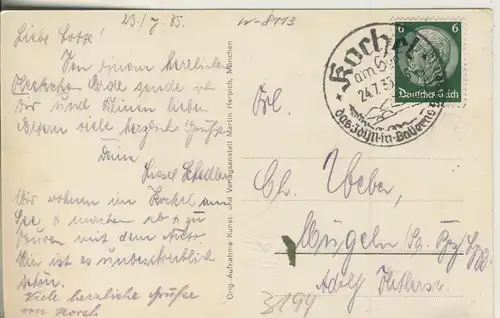 23./7.35.
W-8113
Liebe Lotte!
Von einem herrlichen
Fleckchen Erde sende ich
Dir und Deinen lieben
Eltern viele herzliche Grüße
Deine
Liesel
Wir wohnen in Kochel am
See + machen ab + zu
Touren mit dem Auto
Hier ist es unbeschreiblich
schön.
Viele herzliche Grüße
von Horst
Orig.-Aufnahme Kunst- und Verlagsanstalt Martin Herpich, München
Kochel
am See
24.7.35
das Idyll in Bayerns
6 6
Deutsches Reich
Frl.
Ch. Weber,
Mügeln
Adolf Hitlerstr.
3194